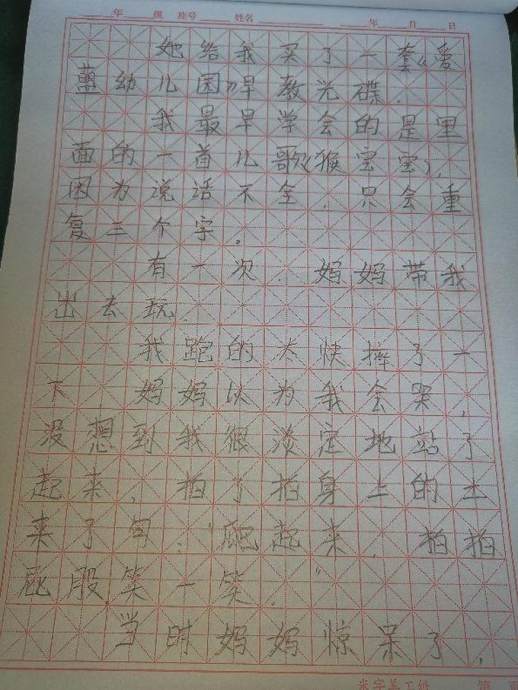 年 级 座号 姓名 年 月 日
她给我买了一套《爱
菌幼儿园》早教光碟.
我最早学会的是里
面的一首儿歌《猴宝宝》,
因为说话不全.只会重
复三个字。
有一次.妈妈带我
出去玩.
我跑的太快摔了一
下,妈妈以为我会哭,
没想到我很淡定地站了
起来,拍了拍身上的土
来了句:“爬起来,拍拍
屁股笑一笑.”
当时妈妈惊呆了,